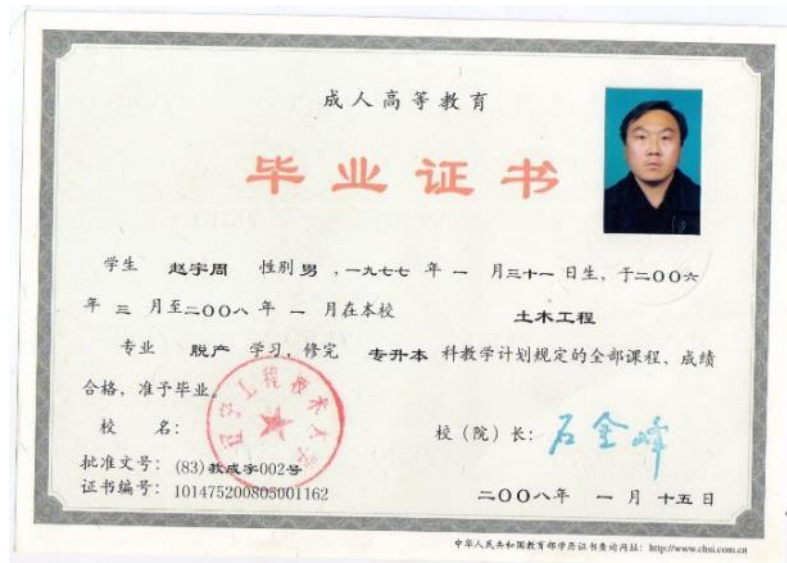 成人高等教育
毕业证书
学生 赵宇周 性别 男 ,一九七七 年 一 月三十一 日生, 于二〇〇六
年 三 月至二〇〇八 年 一 月在本校 土木工程
专业 脱产 学习, 修完 专升本 科教学计划规定的全部课程、成绩
合格, 准予毕业。
辽宁工程技术大学
校 名: 校(院)长: 石金峰
批准文号: (83)教成字002号
证书编号: 101475200805001162 二〇〇八年 一 月 十五 日
中华人民共和国教育部学历证书查询网址: http://www.chsi.com.cn